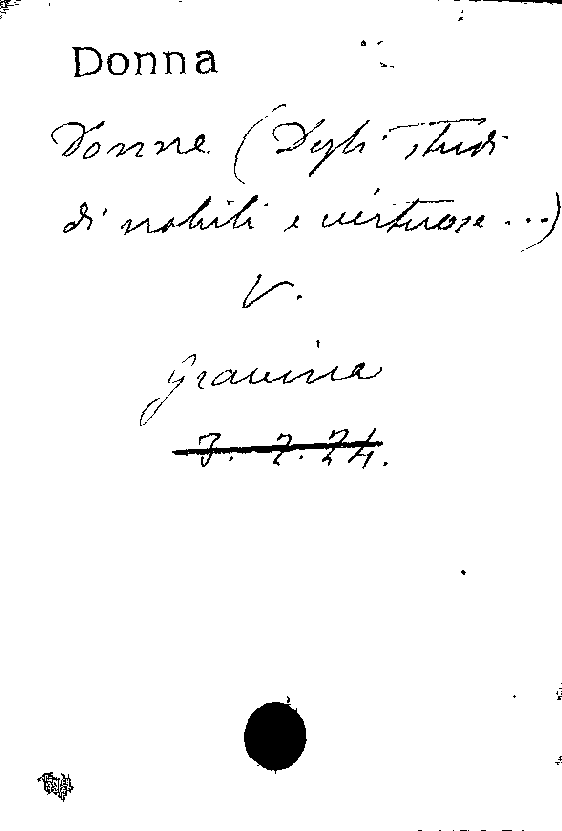 Donna
Donne (Degli studi
di nobili e virtuose ...)
V.
Gravina
3. 2. 24.